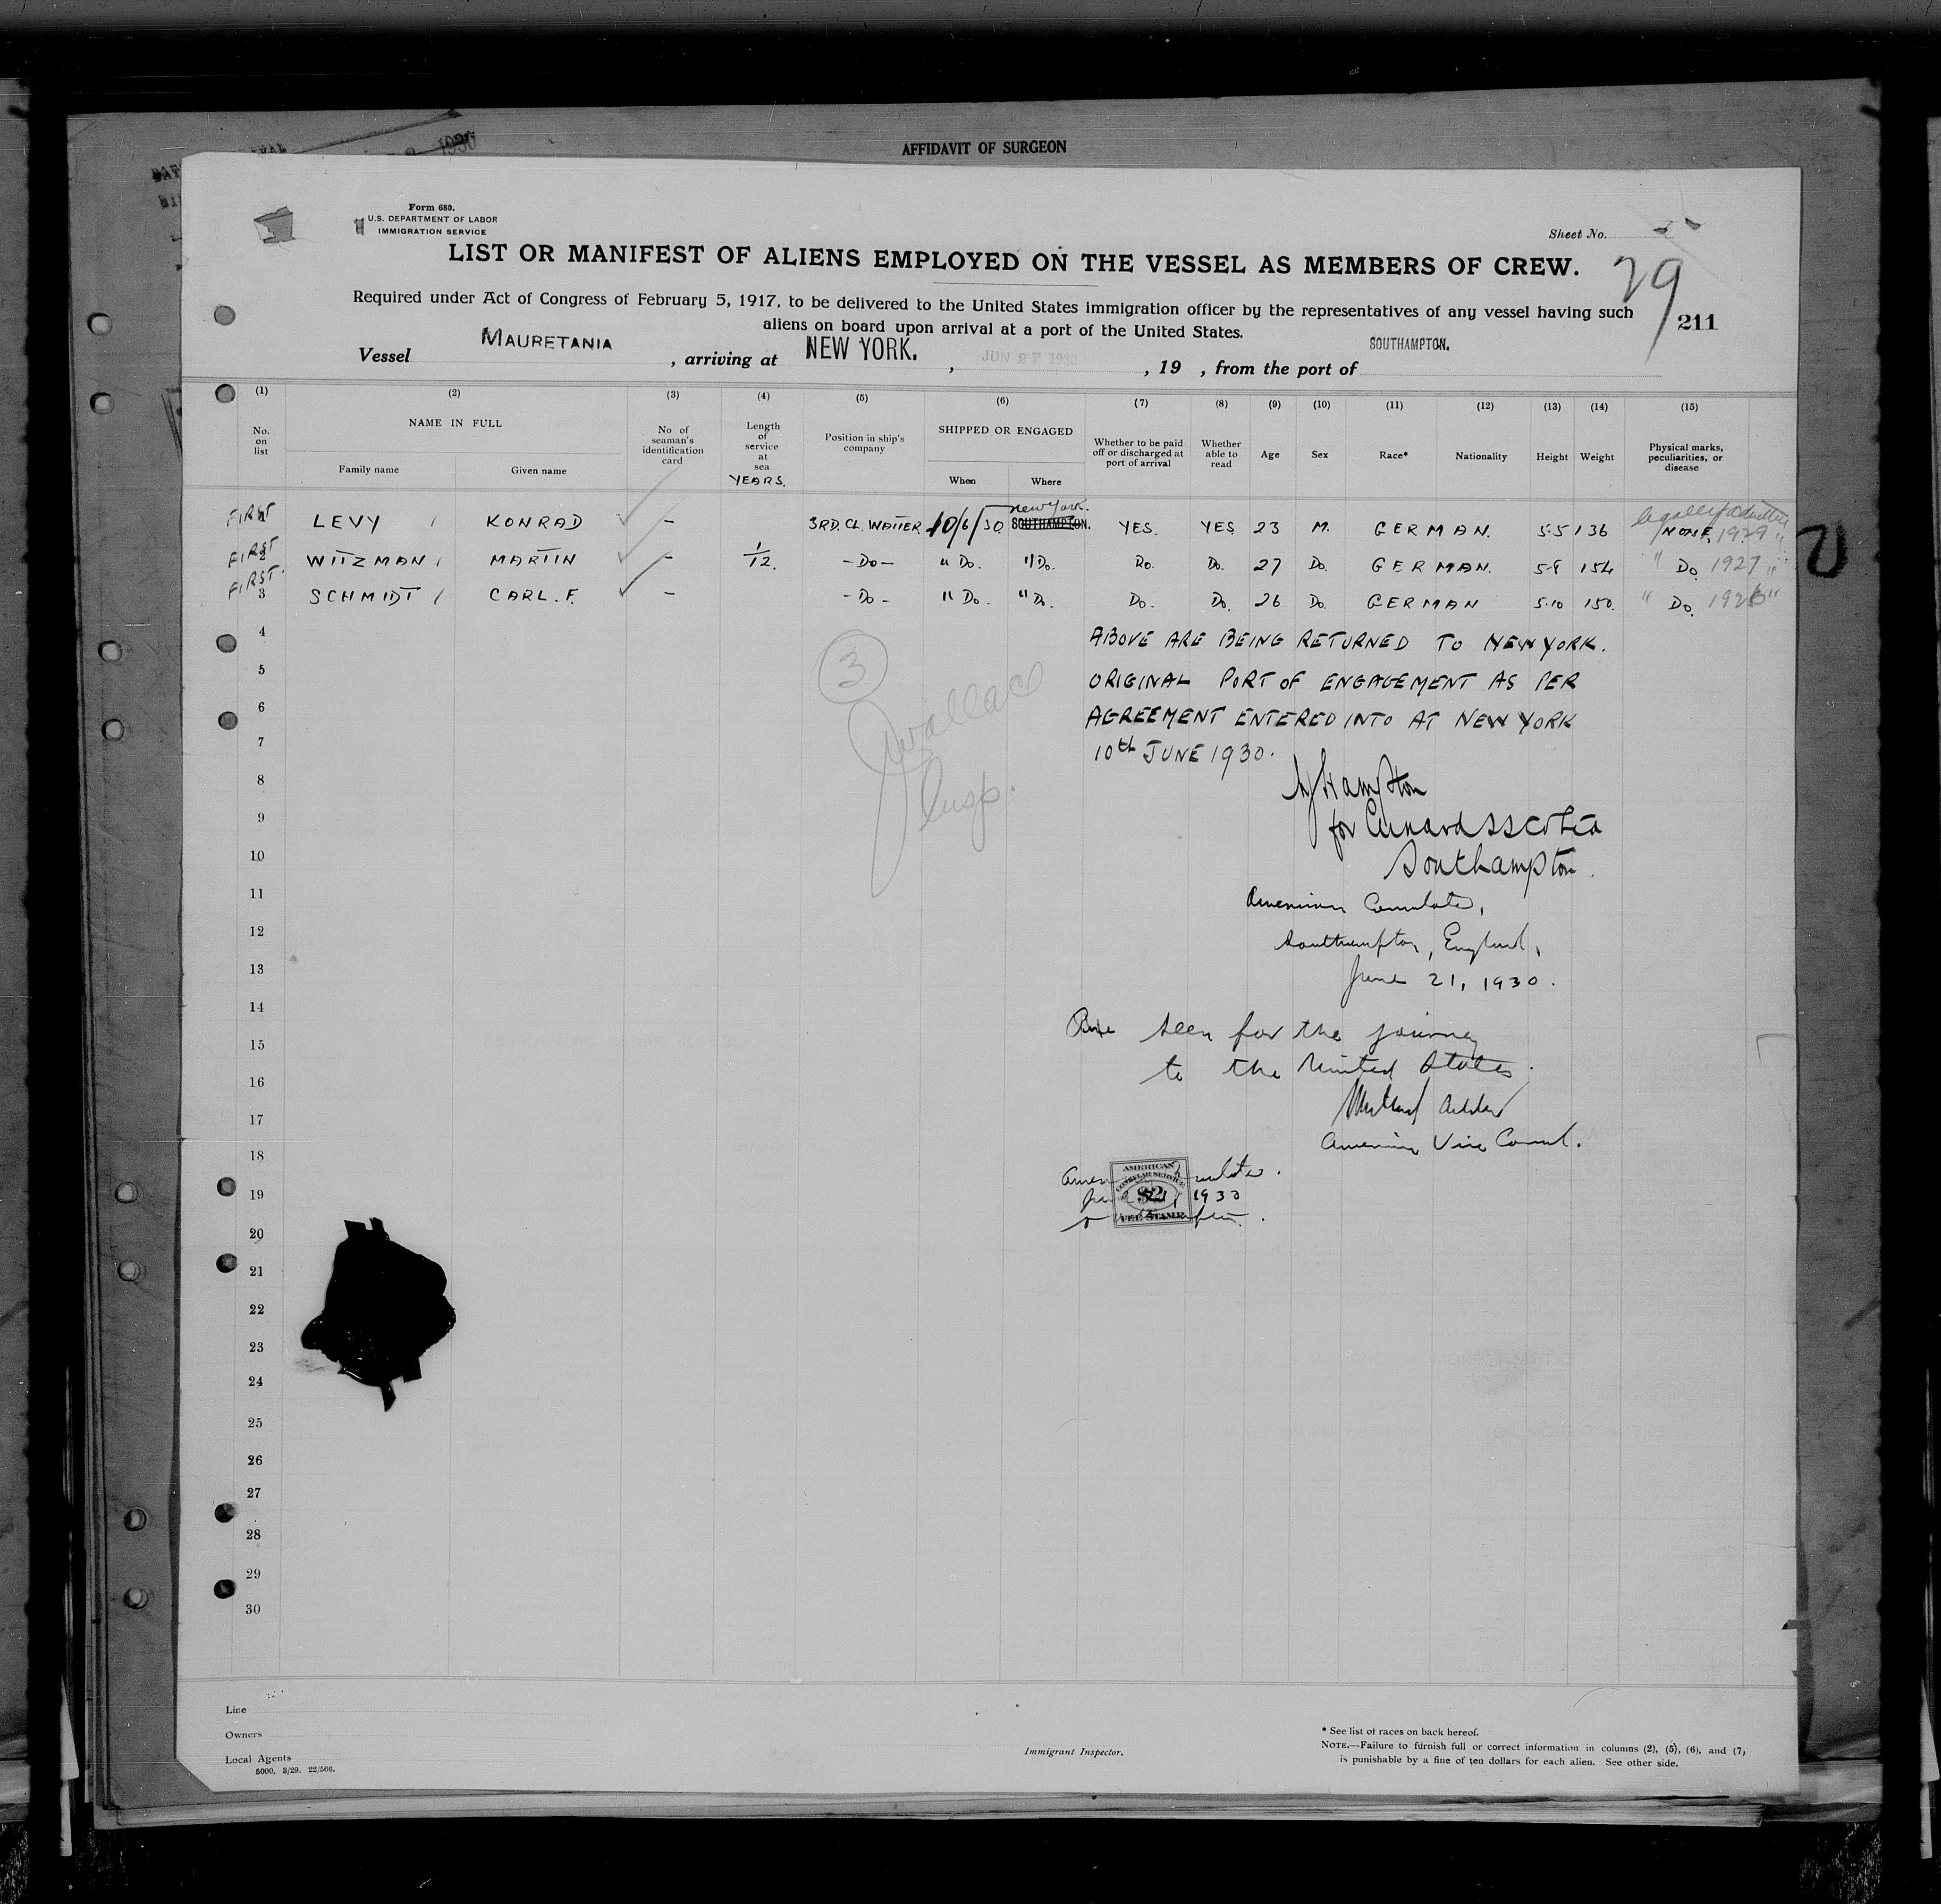 AFFIDAVIT OF SURGEON
Form 680.
U.S. DEPARTMENT OF LABOR
IMMIGRATION SERVICE
Sheet No.
LIST OR MANIFEST OF ALIENS EMPLOYED ON THE VESSEL AS MEMBERS OF CREW.
29
Required under Act of Congress of February 5, 1917, to be delivered to the United States immigration officer by the representatives of any vessel having such
aliens on board upon arrival at a port of the United States.
211
Vessel MAURETANIA , arriving at NEW YORK. , JUN 27 1930 , 19 , from the port of SOUTHAMPTON.
(1) (2) (3) (4) (5) (6) (7) (8) (9) (10) (11) (12) (13) (14) (15)
No. on list NAME IN FULL Family name Given name No. of seaman's identification card Length of service at sea YEARS. Position in ship's company SHIPPED OR ENGAGED When Where Whether to be paid off or discharged at port of arrival Whether able to read Age Sex Race* Nationality Height Weight Physical marks, peculiarities, or disease
New York. legally admitted
FIRST 1 LEVY KONRAD - 3RD. CL. WAITER 10/6/30 SOUTHAMPTON. YES. YES 23 M. GERMAN. 5-5 136 NONE, 1929 "
FIRST 2 WITZMAN MARTIN - 1/12. -Do- " Do. " Do. Do. Do. 27 Do. GERMAN. 5-8 154 " Do. 1927 "
FIRST. 3 SCHMIDT CARL. F. - -Do- " Do. " Do. Do. Do. 26 Do. GERMAN 5-10 150. " Do. 1926 "
4 ABOVE ARE BEING RETURNED TO NEW YORK.
5 ORIGINAL PORT OF ENGAGEMENT AS PER
6 AGREEMENT ENTERED INTO AT NEW YORK
7 10th JUNE 1930.
3
Wallace
Insp.
8 Hampton
9 for Cunard SS Co Ltd
10 Southampton.
11 American Consulate,
12 Southampton, England,
13 June 21, 1930.
14 seen for the journey
15 to the United States.
16
17 American Vice Consul.
18
19 1930
AMERICAN
CONSULAR SERVICE
$2
FEE STAMP
20
21
22
23
24
25
26
27
28
29
30
Line
Owners
Local Agents
5000. 3/29. 22/566.
Immigrant Inspector.
* See list of races on back hereof.
NOTE.—Failure to furnish full or correct information in columns (2), (5), (6), and (7)
is punishable by a fine of ten dollars for each alien. See other side.